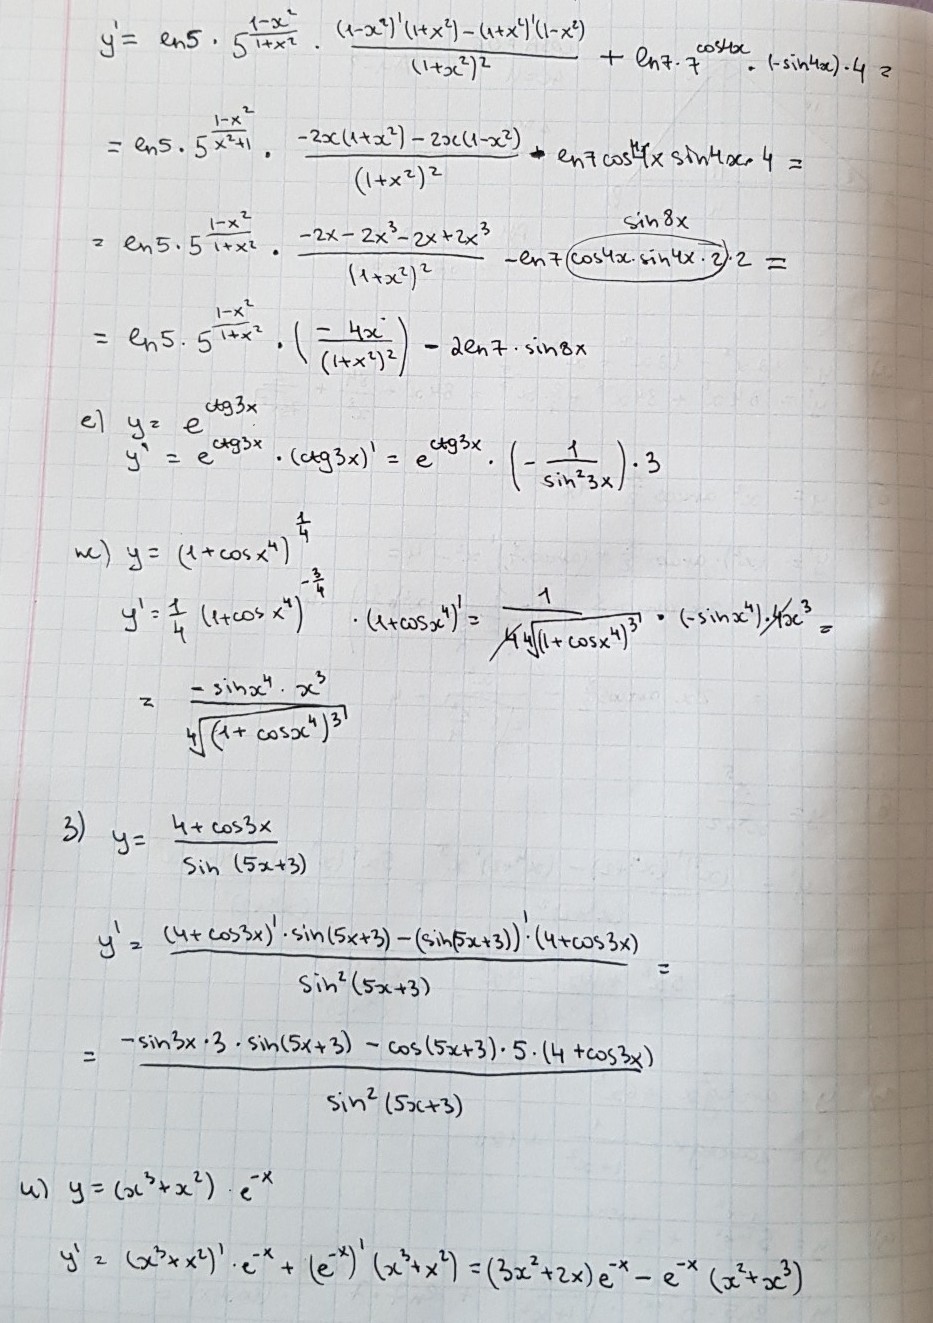 y' = ln5 · 5^((1-x²)/(1+x²)) · ((1-x²)'(1+x²) - (1+x²)'(1-x²))/((1+x²)²) + ln7 · 7^(cos4x) · (-sin4x) · 4 =
= ln5 · 5^((1-x²)/(x²+1)) · (-2x(1+x²) - 2x(1-x²))/((1+x²)²) - ln7 cos4x sin4x · 4 =
= ln5 · 5^((1-x²)/(1+x²)) · (-2x - 2x³ - 2x + 2x³)/((1+x²)²) - ln7 (cos4x · sin4x · 2) · 2 =
sin8x
= ln5 · 5^((1-x²)/(1+x²)) · (-4x/((1+x²)²)) - 2ln7 · sin8x
е) y = e^(ctg3x)
y' = e^(ctg3x) · (ctg3x)' = e^(ctg3x) · (-1/(sin²3x)) · 3
ж) y = (1+cosx⁴)^(1/4)
y' = 1/4 (1+cosx⁴)^(-3/4) · (1+cosx⁴)' = 1/(4 ⁴√((1+cosx⁴)³)) · (-sinx⁴) · 4x³ =
= (-sinx⁴ · x³)/(⁴√((1+cosx⁴)³))
з) y = (4+cos3x)/(sin(5x+3))
y' = ((4+cos3x)' · sin(5x+3) - (sin(5x+3))' · (4+cos3x))/(sin²(5x+3)) =
= (-sin3x · 3 · sin(5x+3) - cos(5x+3) · 5 · (4+cos3x))/(sin²(5x+3))
и) y = (x³+x²) · e^(-x)
y' = (x³+x²)' · e^(-x) + (e^(-x))' (x³+x²) = (3x²+2x)e^(-x) - e^(-x) (x²+x³)